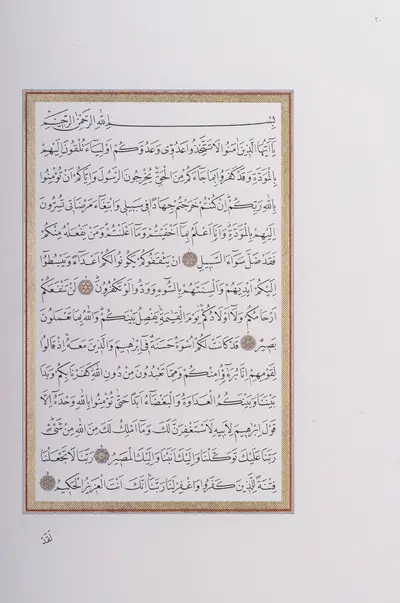 ٢٠
بِسْمِ اللهِ الرَّحْمٰنِ الرَّحِيمِ
يَا اَيُّهَا الَّذِينَ اٰمَنُوا لَا تَتَّخِذُوا عَدُوِّى وَعَدُوَّكُمْ اَوْلِيَاءَ تُلْقُونَ اِلَيْهِمْ
بِالْمَوَدَّةِ وَقَدْ كَفَرُوا بِمَا جَاءَكُمْ مِنَ الْحَقِّ يُخْرِجُونَ الرَّسُولَ وَاِيَّاكُمْ اَنْ تُؤْمِنُوا
بِاللهِ رَبِّكُمْ اِنْ كُنْتُمْ خَرَجْتُمْ جِهَادًا فِى سَبِيلِى وَابْتِغَاءَ مَرْضَاتِى تُسِرُّونَ
اِلَيْهِمْ بِالْمَوَدَّةِ وَاَنَا اَعْلَمُ بِمَا اَخْفَيْتُمْ وَمَا اَعْلَنْتُمْ وَمَنْ يَفْعَلْهُ مِنْكُمْ
فَقَدْ ضَلَّ سَوَاءَ السَّبِيلِ اِنْ يَثْقَفُوكُمْ يَكُونُوا لَكُمْ اَعْدَاءً وَيَبْسُطُوا
اِلَيْكُمْ اَيْدِيَهُمْ وَاَلْسِنَتَهُمْ بِالسُّوءِ وَوَدُّوا لَوْ تَكْفُرُونَ لَنْ تَنْفَعَكُمْ
اَرْحَامُكُمْ وَلَا اَوْلَادُكُمْ يَوْمَ الْقِيٰمَةِ يَفْصِلُ بَيْنَكُمْ وَاللهُ بِمَا تَعْمَلُونَ
بَصِيرٌ قَدْ كَانَتْ لَكُمْ اُسْوَةٌ حَسَنَةٌ فِى اِبْرٰهِيمَ وَالَّذِينَ مَعَهُ اِذْ قَالُوا
لِقَوْمِهِمْ اِنَّا بُرَءٰٓؤُا مِنْكُمْ وَمِمَّا تَعْبُدُونَ مِنْ دُونِ اللهِ كَفَرْنَا بِكُمْ وَبَدَا
بَيْنَنَا وَبَيْنَكُمُ الْعَدَاوَةُ وَالْبَغْضَاءُ اَبَدًا حَتّٰى تُؤْمِنُوا بِاللهِ وَحْدَهُ اِلَّا
قَوْلَ اِبْرٰهِيمَ لِاَبِيهِ لَاَسْتَغْفِرَنَّ لَكَ وَمَا اَمْلِكُ لَكَ مِنَ اللهِ مِنْ شَىْءٍ
رَبَّنَا عَلَيْكَ تَوَكَّلْنَا وَاِلَيْكَ اَنَبْنَا وَاِلَيْكَ الْمَصِيرُ رَبَّنَا لَا تَجْعَلْنَا
فِتْنَةً لِلَّذِينَ كَفَرُوا وَاغْفِرْ لَنَا رَبَّنَا اِنَّكَ اَنْتَ الْعَزِيزُ الْحَكِيمُ
لَقَدْ